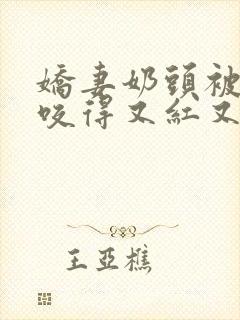 嬌妻奶頭被
咬得又紅又
王亞樵